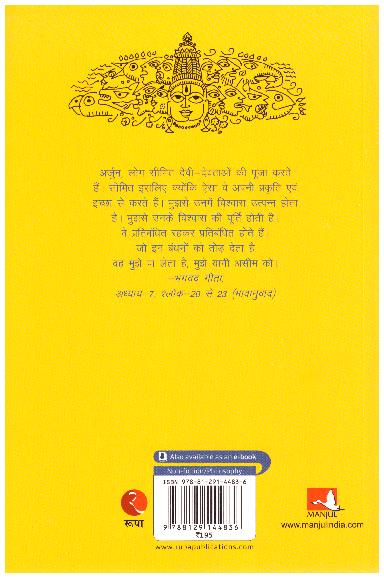 अर्जुन, लोग सीमित देवी-देवताओं की पूजा करते
हैं। सीमित इसलिए क्योंकि ऐसा वे अपनी प्रकृति एवं
इच्छा से करते हैं। मुझसे उनमें विश्वास उत्पन्न होता
है। मुझसे उनके विश्वास की पूर्ति होती है।
वे प्रतिबंधित रहकर प्रतिबंधित होते हैं।
जो इन बंधनों को तोड़ देता है
वह मुझे पा लेता है, मुझे यानी असीम को।
-भगवद गीता,
अध्याय 7, श्लोक-20 से 23 (भावानुवाद)
Also available as an e-book
Non-fiction/Philosophy
ISBN 978-81-291-4483-6
9 788129 144836
₹195
रूपा
www.rupapublications.com
MANJUL
www.manjulindia.com